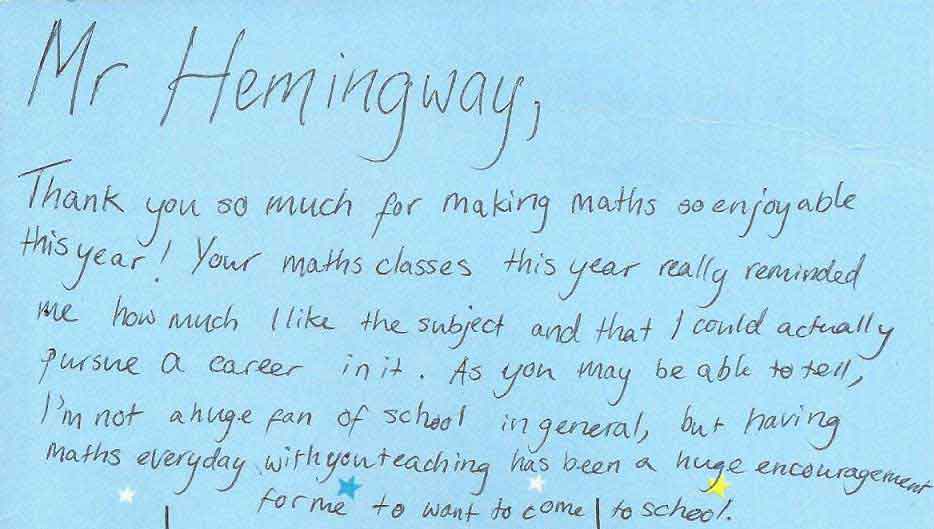 Mr Hemingway,
Thank you so much for making maths so enjoyable
this year! Your maths classes this year really reminded
me how much I like the subject and that I could actually
pursue a career in it. As you may be able to tell,
I'm not a huge fan of school in general, but having
maths everyday with you teaching has been a huge encouragement
for me to want to come to school!